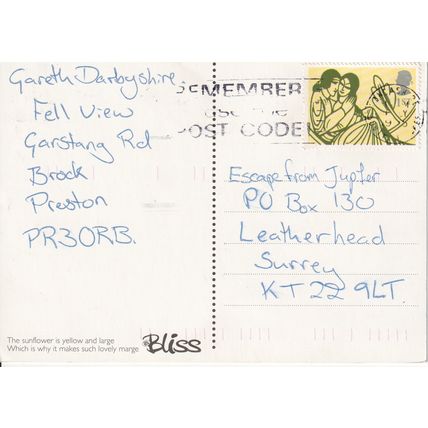 Gareth Darbyshire.
Fell View
Garstang Rd
Brock
Preston
PR3 0RB.
REMEMBER
USE THE
POST CODE
Escape from Jupiter
PO Box 130
Leatherhead
Surrey
KT22 9LT.
The sunflower is yellow and large
Which is why it makes such lovely marge
Bliss